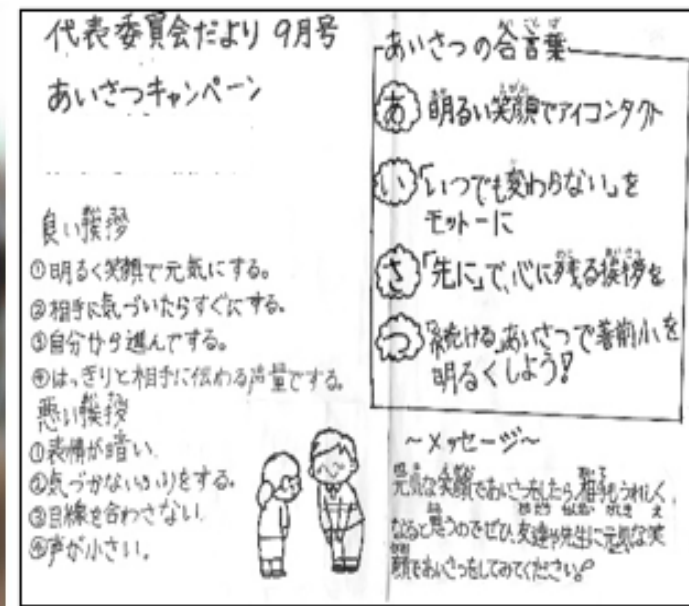 代表委員会だより 9月号
あいさつキャンペーン
良い挨拶
①明るく笑顔で元気にする。
②相手に気づいたらすぐにする。
③自分から進んでする。
④はっきりと相手に伝わる声量でする。
悪い挨拶
①表情が暗い。
②気づかないふりをする。
③目線を合わさない。
④声が小さい。
あいさつの合言葉
あ 明るい笑顔でアイコンタクト
い 「いつでも変わらない」を
モットーに
さ 「先に」で、心に残る挨拶を
つ 「続ける」あいさつで善削小を
明るくしよう!
～メッセージ～
元気な笑顔であいさつをしたら、相手もうれしく
なると思うのでぜひ、友達や先生に元気な笑
顔であいさつをしてみてください。